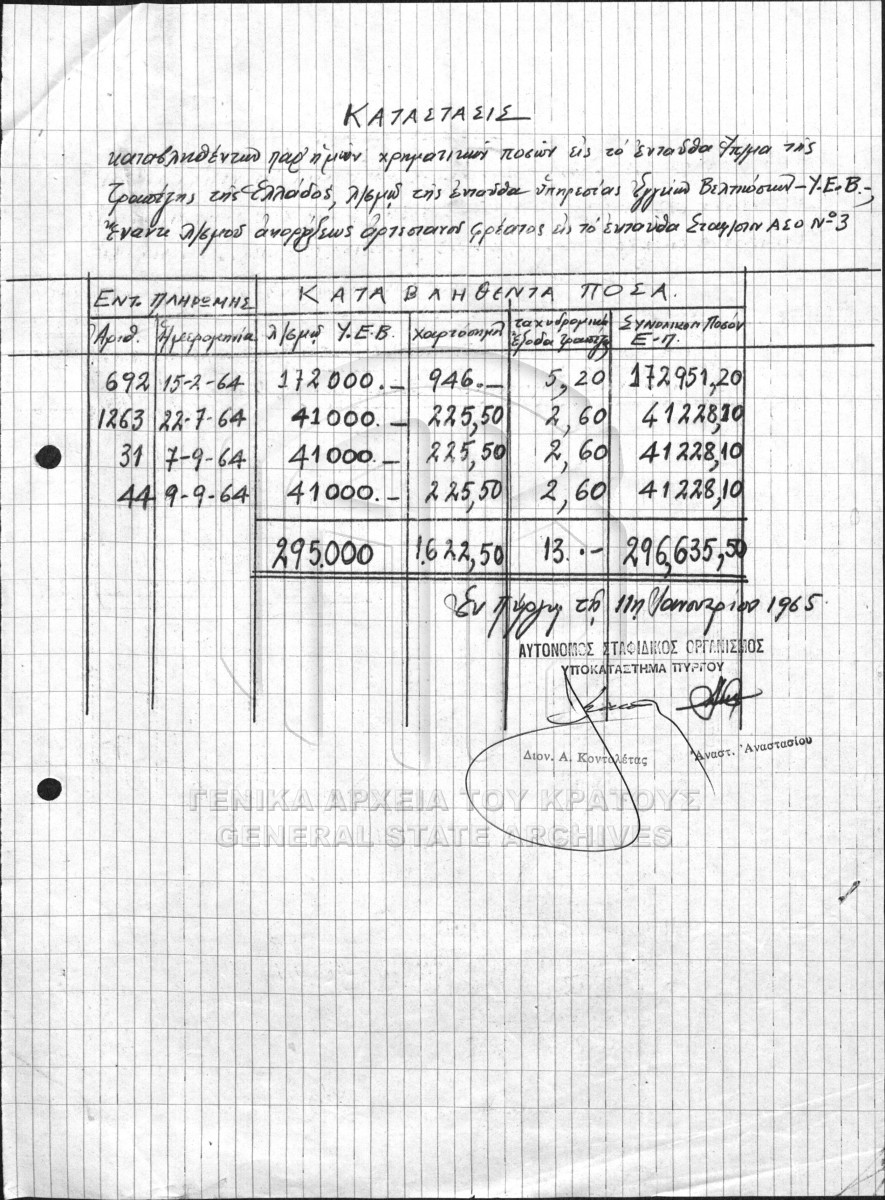 ΚΑΤΑΣΤΑΣΙΣ
καταβληθέντων παρ' ἡμῶν χρηματικῶν ποσῶν εἰς τό ἐνταῦθα Ὑπ/μα τῆς
Τραπέζης τῆς Ἑλλάδος, λ/σμῷ τῆς ἐνταῦθα ὑπηρεσίας Ἐγγείων Βελτιώσεων – Υ.Ε.Β. –,
ἔναντι λ/σμοῦ ἀνορύξεως ἀρτεσιανοῦ φρέατος εἰς τό ἐνταῦθα ΑΣΟ Νο 3
ΕΝΤ. ΠΛΗΡΩΜΗΣ ΚΑΤΑΒΛΗΘΕΝΤΑ ΠΟΣΑ.
Ἀριθ. Ἡμερομηνία λ/σμῷ Υ.Ε.Β. χαρτόσημ ταχυδρομικά ἔξοδα Τραπέζ ΣΥΝΟΛΙΚΟΝ Ποσόν Ε.Π.
692 15-2-64 172000.— 946.— 5,20 172951,20
1263 22-7-64 41000.— 225,50 2,60 41228,10
31 7-9-64 41000.— 225,50 2,60 41228,10
44 9-9-64 41000.— 225,50 2,60 41228,10
295.000 1.622,50 13.— 296,635,50
Ἐν Πύργῳ τῇ 11ῃ Ἰανουαρίου 1965
ΑΥΤΟΝΟΜΟΣ ΣΤΑΦΙΔΙΚΟΣ ΟΡΓΑΝΙΣΜΟΣ
ΥΠΟΚΑΤΑΣΤΗΜΑ ΠΥΡΓΟΥ
Διον. Α. Κοντολέτας Ἀναστ. Ἀναστασίου
ΓΕΝΙΚΑ ΑΡΧΕΙΑ ΤΟΥ ΚΡΑΤΟΥΣ
GENERAL STATE ARCHIVES